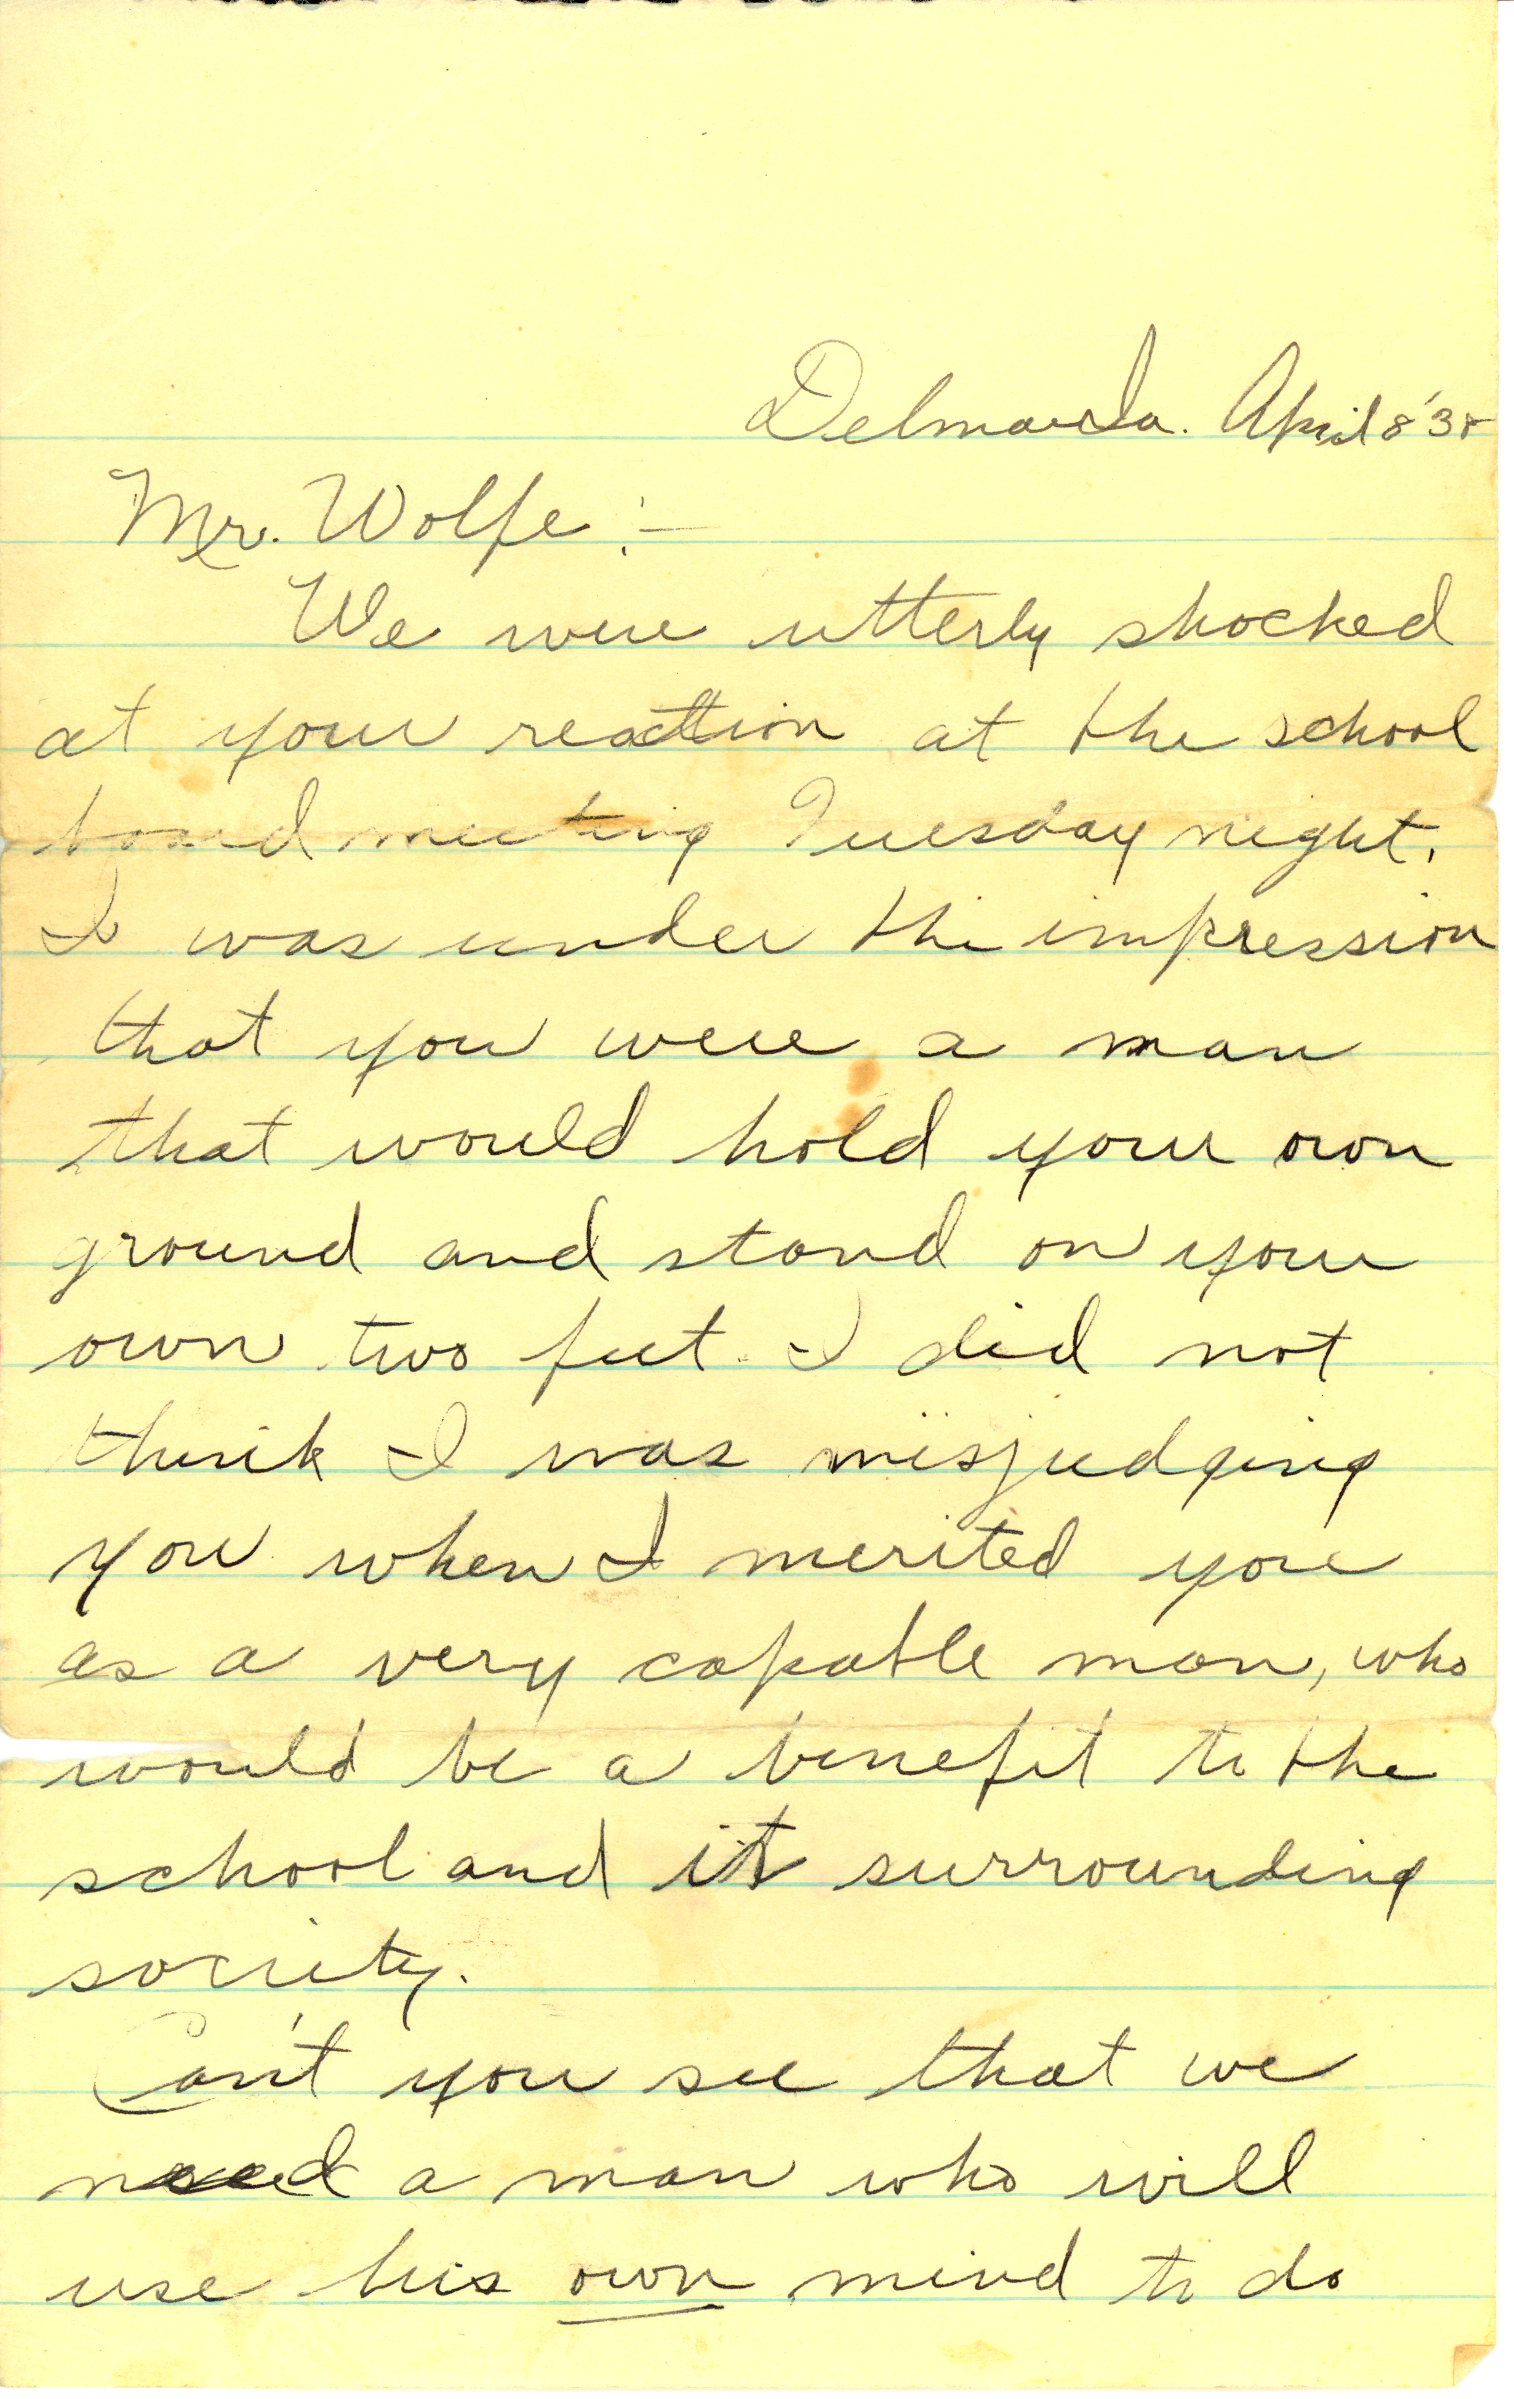 Delmar Ia. April 8 '38
Mr. Wolfe :-
We were utterly shocked
at your reaction at the school
board meeting Tuesday night.
I was under the impression
that you were a man
that would hold your own
ground and stand on your
own two feet. I did not
think I was misjudging
you when I merited you
as a very capable man, who
would be a benefit to the
school and its surrounding
society.
Can't you see that we
need a man who will
use his own mind to do